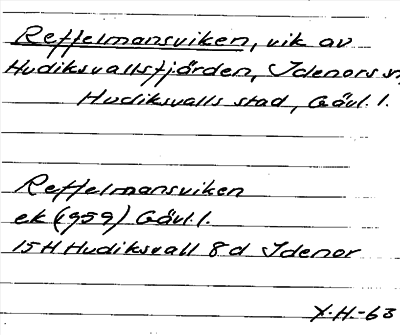 Reffelmansviken, vik av
Hudiksvallsfjärden, Idenors sn,
Hudiksvalls stad, Gävl. l.
Reffelmansviken
ek (1959) Gävl. l.
15H Hudiksvall 8d Idenor
Y.H.-63